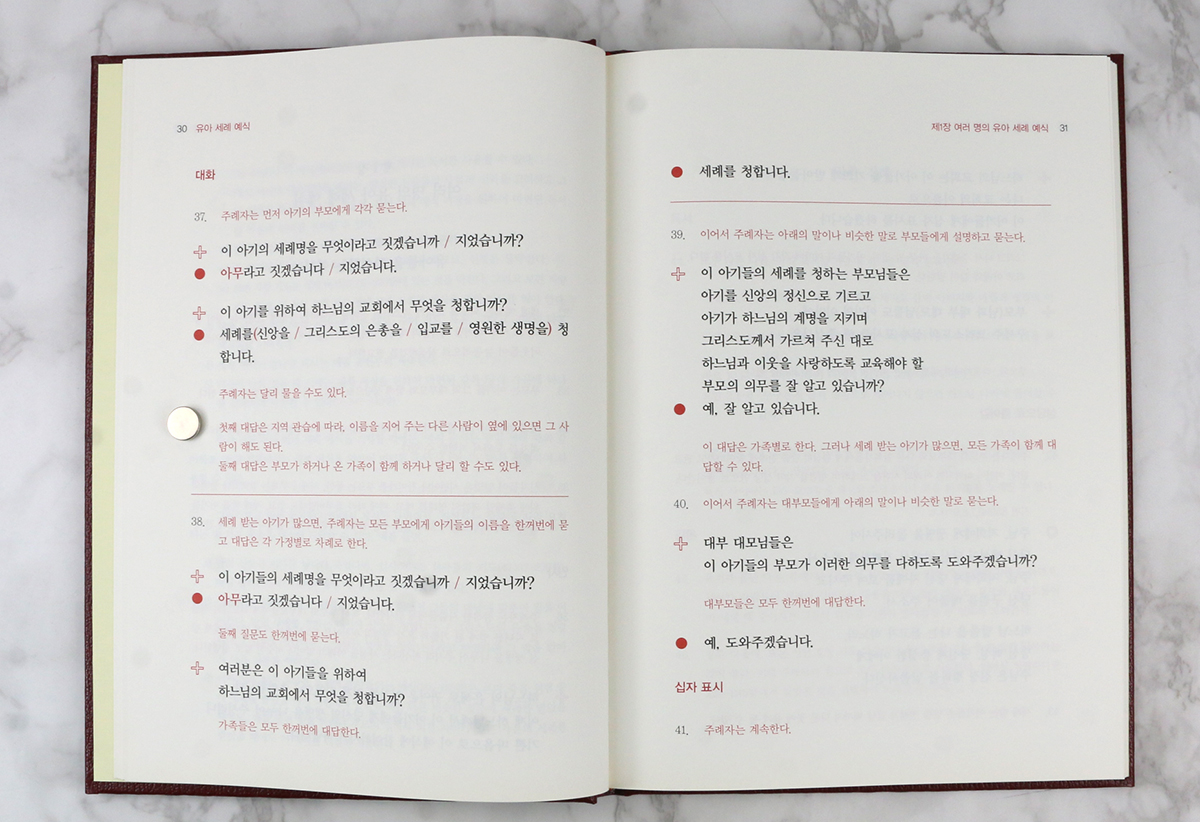 30 유아 세례 예식
대화
37. 주례자는 먼저 아기의 부모에게 각각 묻는다.
이 아기의 세례명을 무엇이라고 짓겠습니까 / 지었습니까?
아무라고 짓겠습니다 / 지었습니다.
이 아기를 위하여 하느님의 교회에서 무엇을 청합니까?
세례를(신앙을 / 그리스도의 은총을 / 입교를 / 영원한 생명을) 청
합니다.
주례자는 달리 물을 수도 있다.
첫째 대답은 지역 관습에 따라, 이름을 지어 주는 다른 사람이 옆에 있으면 그 사
람이 해도 된다.
둘째 대답은 부모가 하거나 온 가족이 함께 하거나 달리 할 수도 있다.
38. 세례 받는 아기가 많으면, 주례자는 모든 부모에게 아기들의 이름을 한꺼번에 묻
고 대답은 각 가정별로 차례로 한다.
이 아기들의 세례명을 무엇이라고 짓겠습니까 / 지었습니까?
아무라고 짓겠습니다 / 지었습니다.
둘째 질문도 한꺼번에 묻는다.
여러분은 이 아기들을 위하여
하느님의 교회에서 무엇을 청합니까?
가족들은 모두 한꺼번에 대답한다.
제1장 여러 명의 유아 세례 예식 31
세례를 청합니다.
39. 이어서 주례자는 아래의 말이나 비슷한 말로 부모들에게 설명하고 묻는다.
이 아기들의 세례를 청하는 부모님들은
아기를 신앙의 정신으로 기르고
아기가 하느님의 계명을 지키며
그리스도께서 가르쳐 주신 대로
하느님과 이웃을 사랑하도록 교육해야 할
부모의 의무를 잘 알고 있습니까?
예, 잘 알고 있습니다.
이 대답은 가족별로 한다. 그러나 세례 받는 아기가 많으면, 모든 가족이 함께 대
답할 수 있다.
40. 이어서 주례자는 대부모들에게 아래의 말이나 비슷한 말로 묻는다.
대부 대모님들은
이 아기들의 부모가 이러한 의무를 다하도록 도와주겠습니까?
대부모들은 모두 한꺼번에 대답한다.
예, 도와주겠습니다.
십자 표시
41. 주례자는 계속한다.